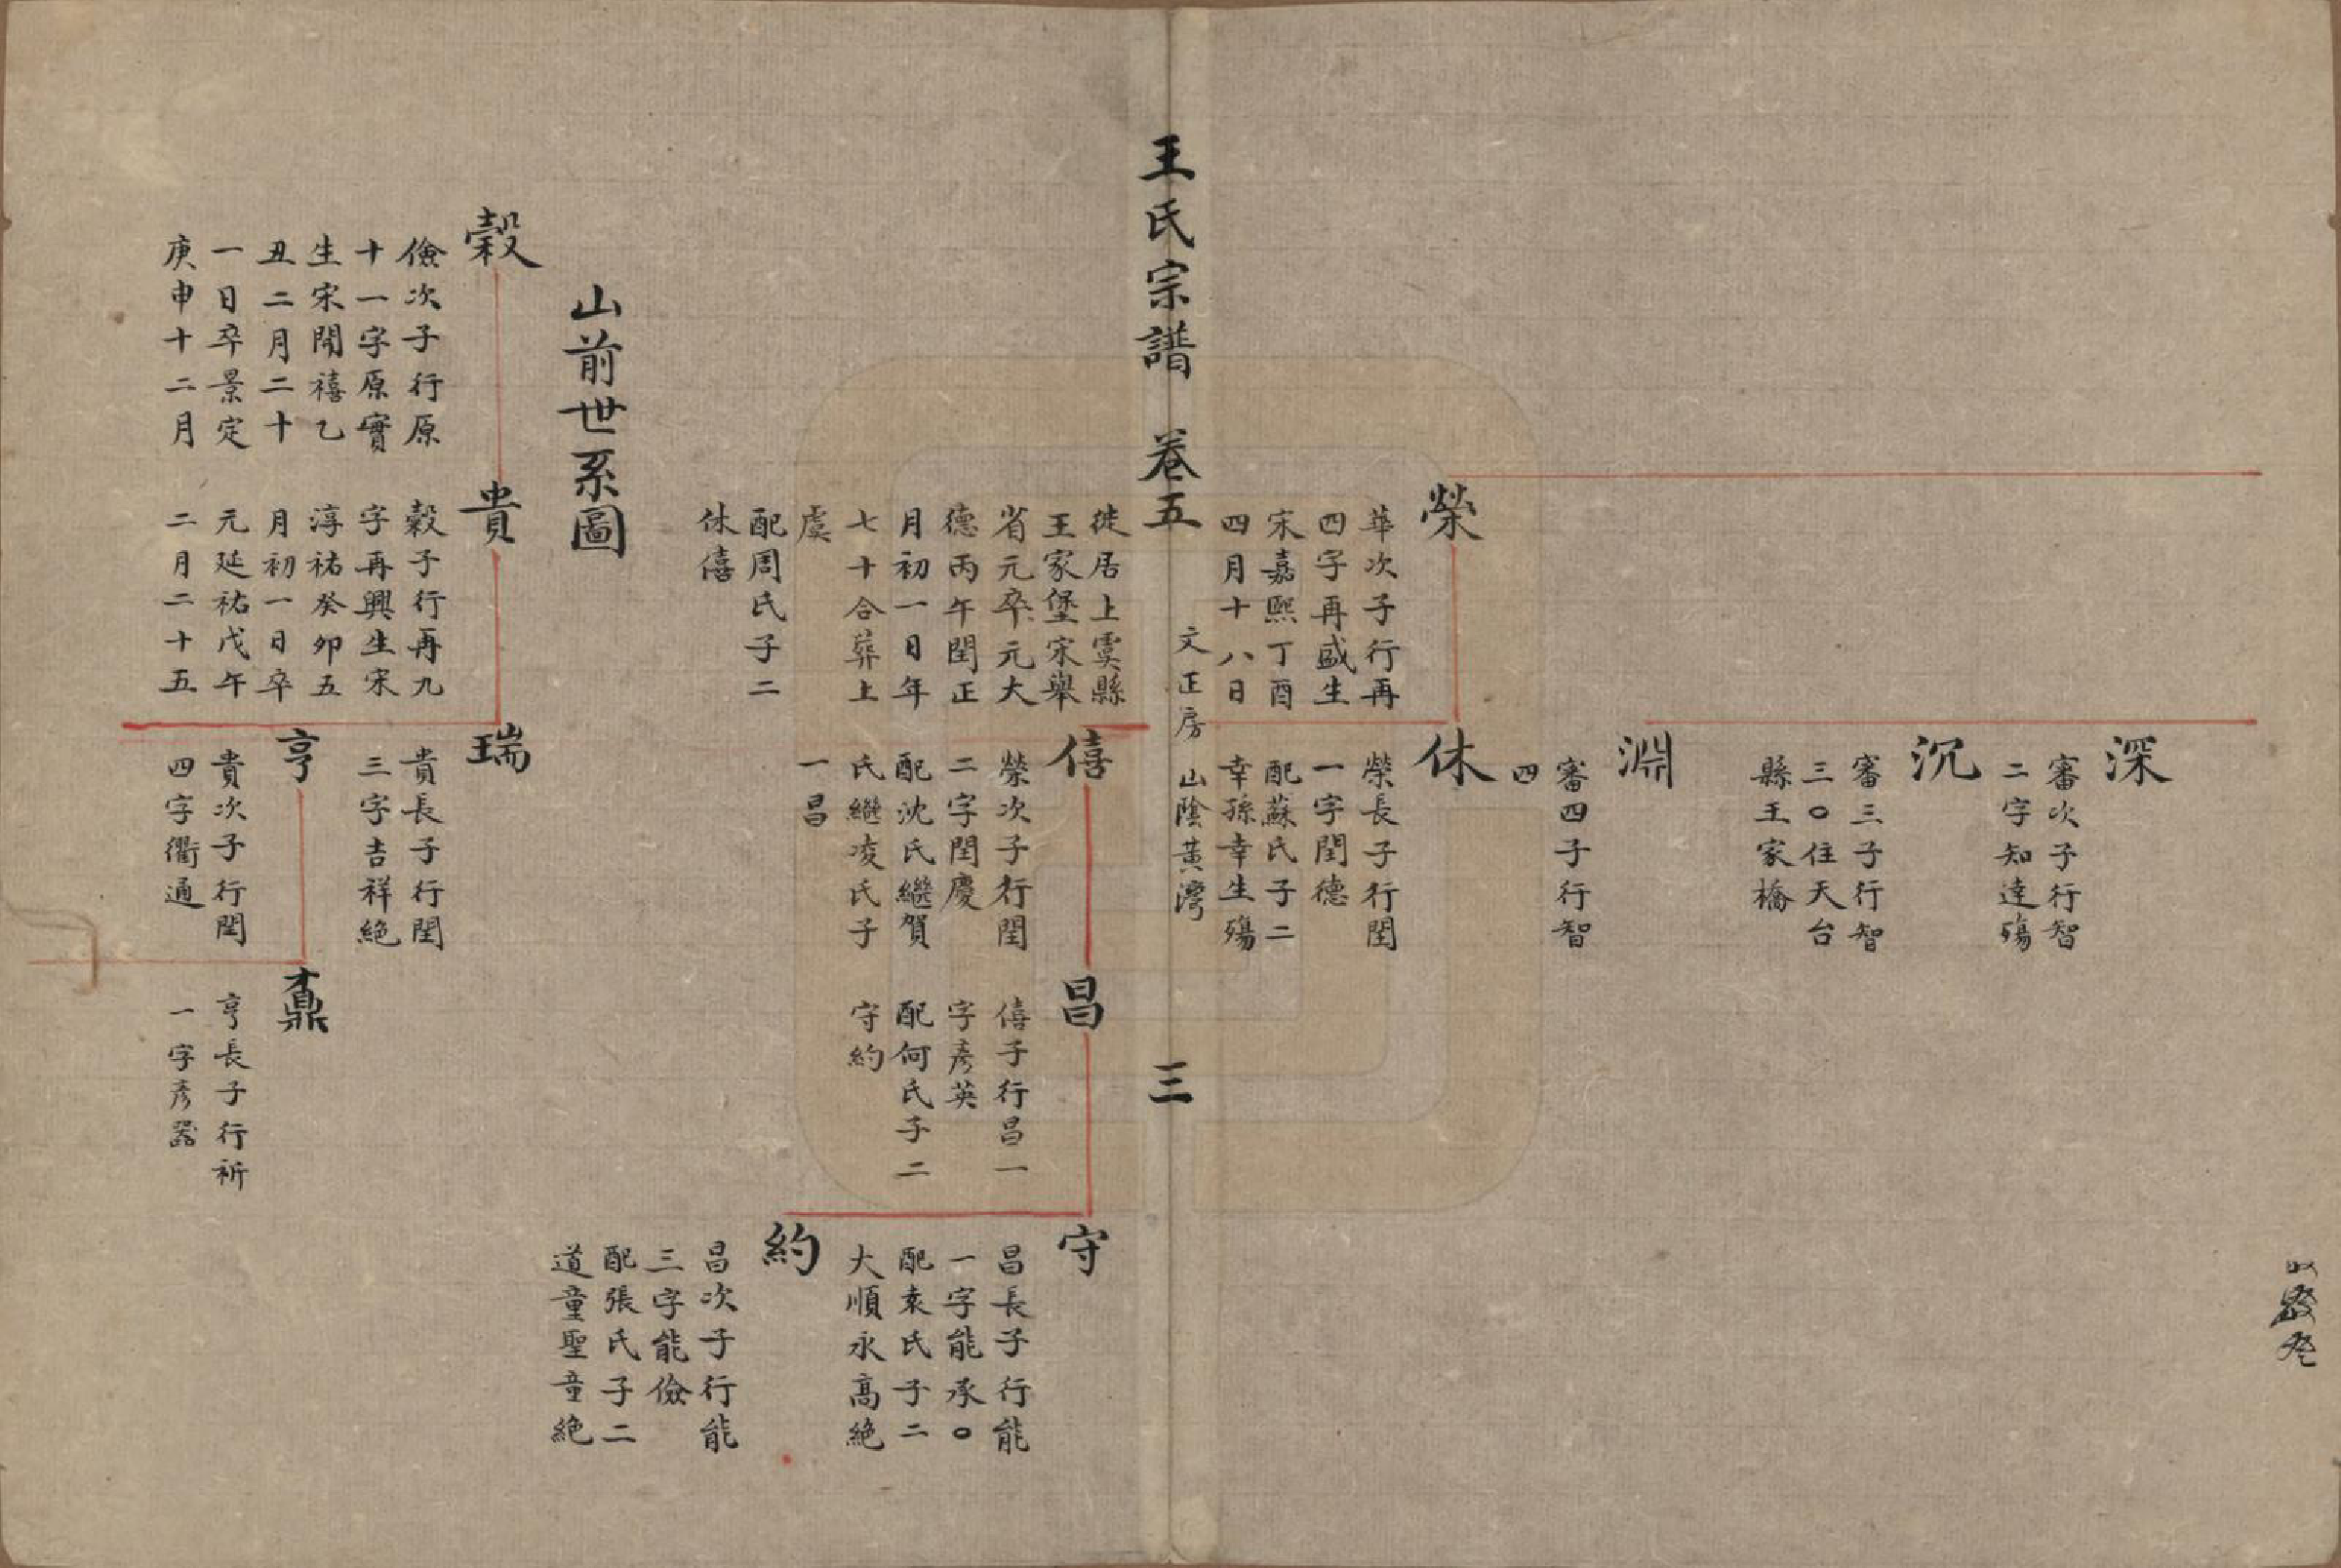 深
審次子行智
二字知達殤
沉
審三子行智
三〇住天台
縣王家橋
淵
審四子行智
四
榮
華次子行再
四字再盛生
宋嘉熙丁酉
四月十八日
徙居上虞縣
王家堡宋舉
省元卒元大
德丙午閏正
月初一日年
七十合葬上
虞
配周氏子二
休僖
休
榮長子行閏
一字閏德
配蘇氏子二
幸孫幸生殤
王氏宗譜 卷五
三
文正房 山陰黃灣
僖
榮次子行閏
二字閏慶
配沈氏繼賀
氏繼凌氏子
一昌
昌
僖子行昌一
字彥英
配何氏子二
守約
守
昌長子行能
一字能承〇
配袁氏子二
大順永高絕
約
昌次子行能
三字能儉
配張氏子二
道童聖童絕
山前世系圖
穀
儉次子行原
十一字原實
生宋開禧乙
丑二月二十
一日卒景定
庚申十二月
貴
穀子行再九
字再興生宋
淳祐癸卯五
月初一日卒
元延祐戊午
二月二十五
瑞
貴長子行閏
三字吉祥絕
亨
貴次子行閏
四字衢通
鼒
亨長子行祈
一字彥器